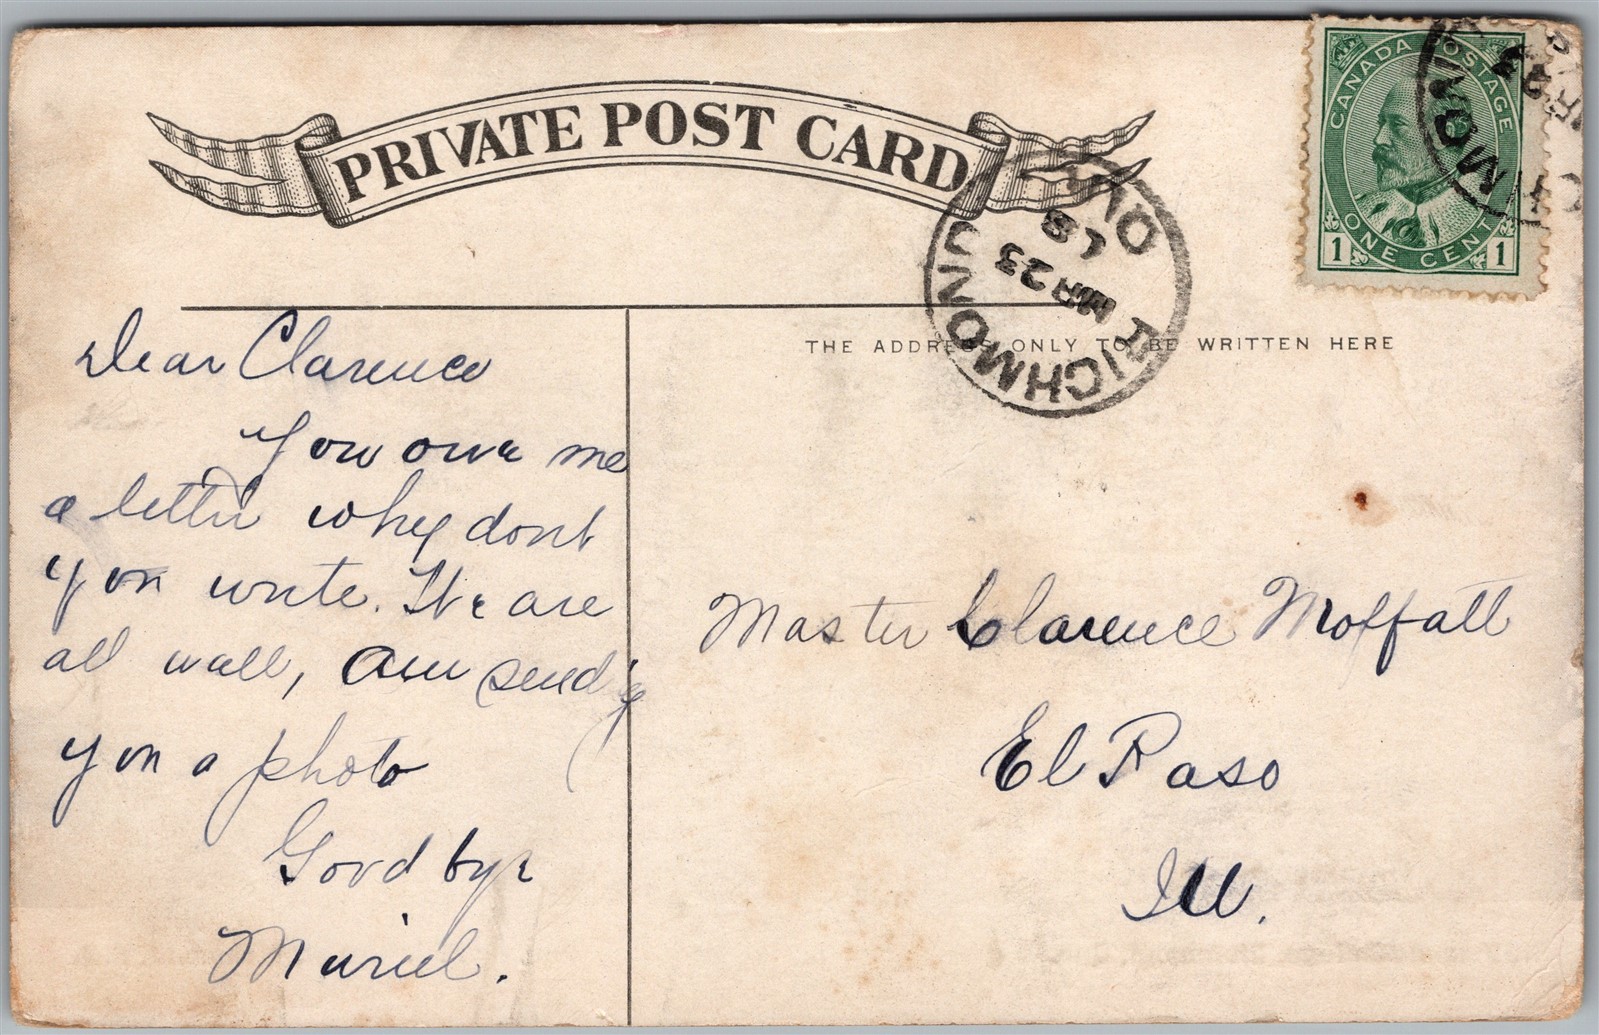 PRIVATE POST CARD
CANADA POSTAGE
ONE CENT
1 1
RICHMOND
MR 23
THE ADDRESS ONLY TO BE WRITTEN HERE
Dear Clarence
You owe me
a letter why dont
you write. We are
all well, Am sending
you a photo
Good bye
Muriel.
Master Clarence Moffatt
El Paso
Ill.